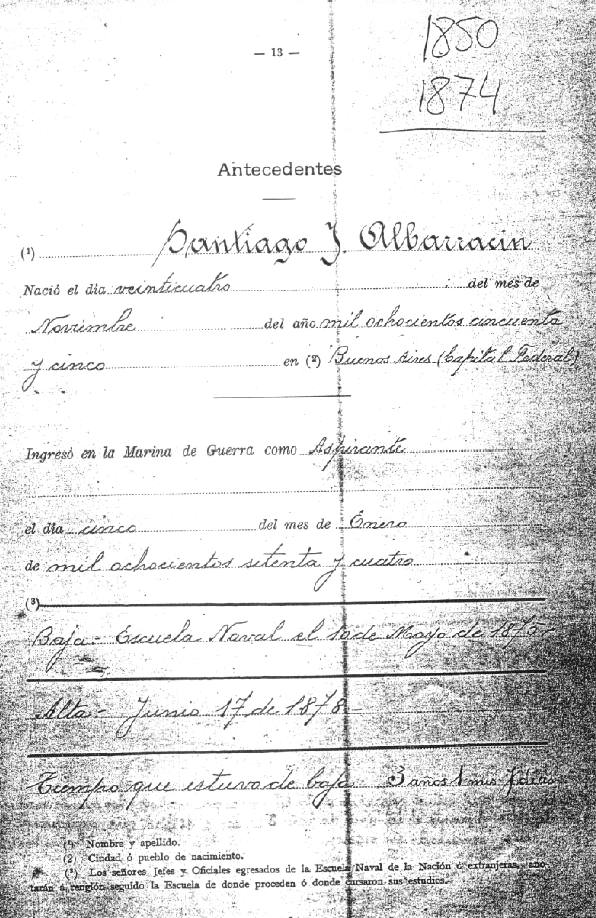 1850
— 13 —
1874
Antecedentes
(1) Santiago J. Albarracin
Nació el dia veinticuatro del mes de
Noviembre del año mil ochocientos cincuenta
y cinco en (2) Buenos Aires (Capital Federal)
Ingresó en la Marina de Guerra como Aspirante
el dia cinco del mes de Enero
de mil ochocientos setenta y cuatro
(3)
Baja - Escuela Naval el 10 de Mayo de 1875-
Alta - Junio 17 de 1878 -
Tiempo que estuvo de baja 3 años 1 mes 7 dias
(1) Nombre y apellido.
(2) Ciudad ó pueblo de nacimiento.
(3) Los señores Jefes y Oficiales egresados de la Escuela Naval de la Nación ó extranjeras, ano
tarán á renglón seguido la Escuela de donde proceden ó donde cursaron sus estudios.